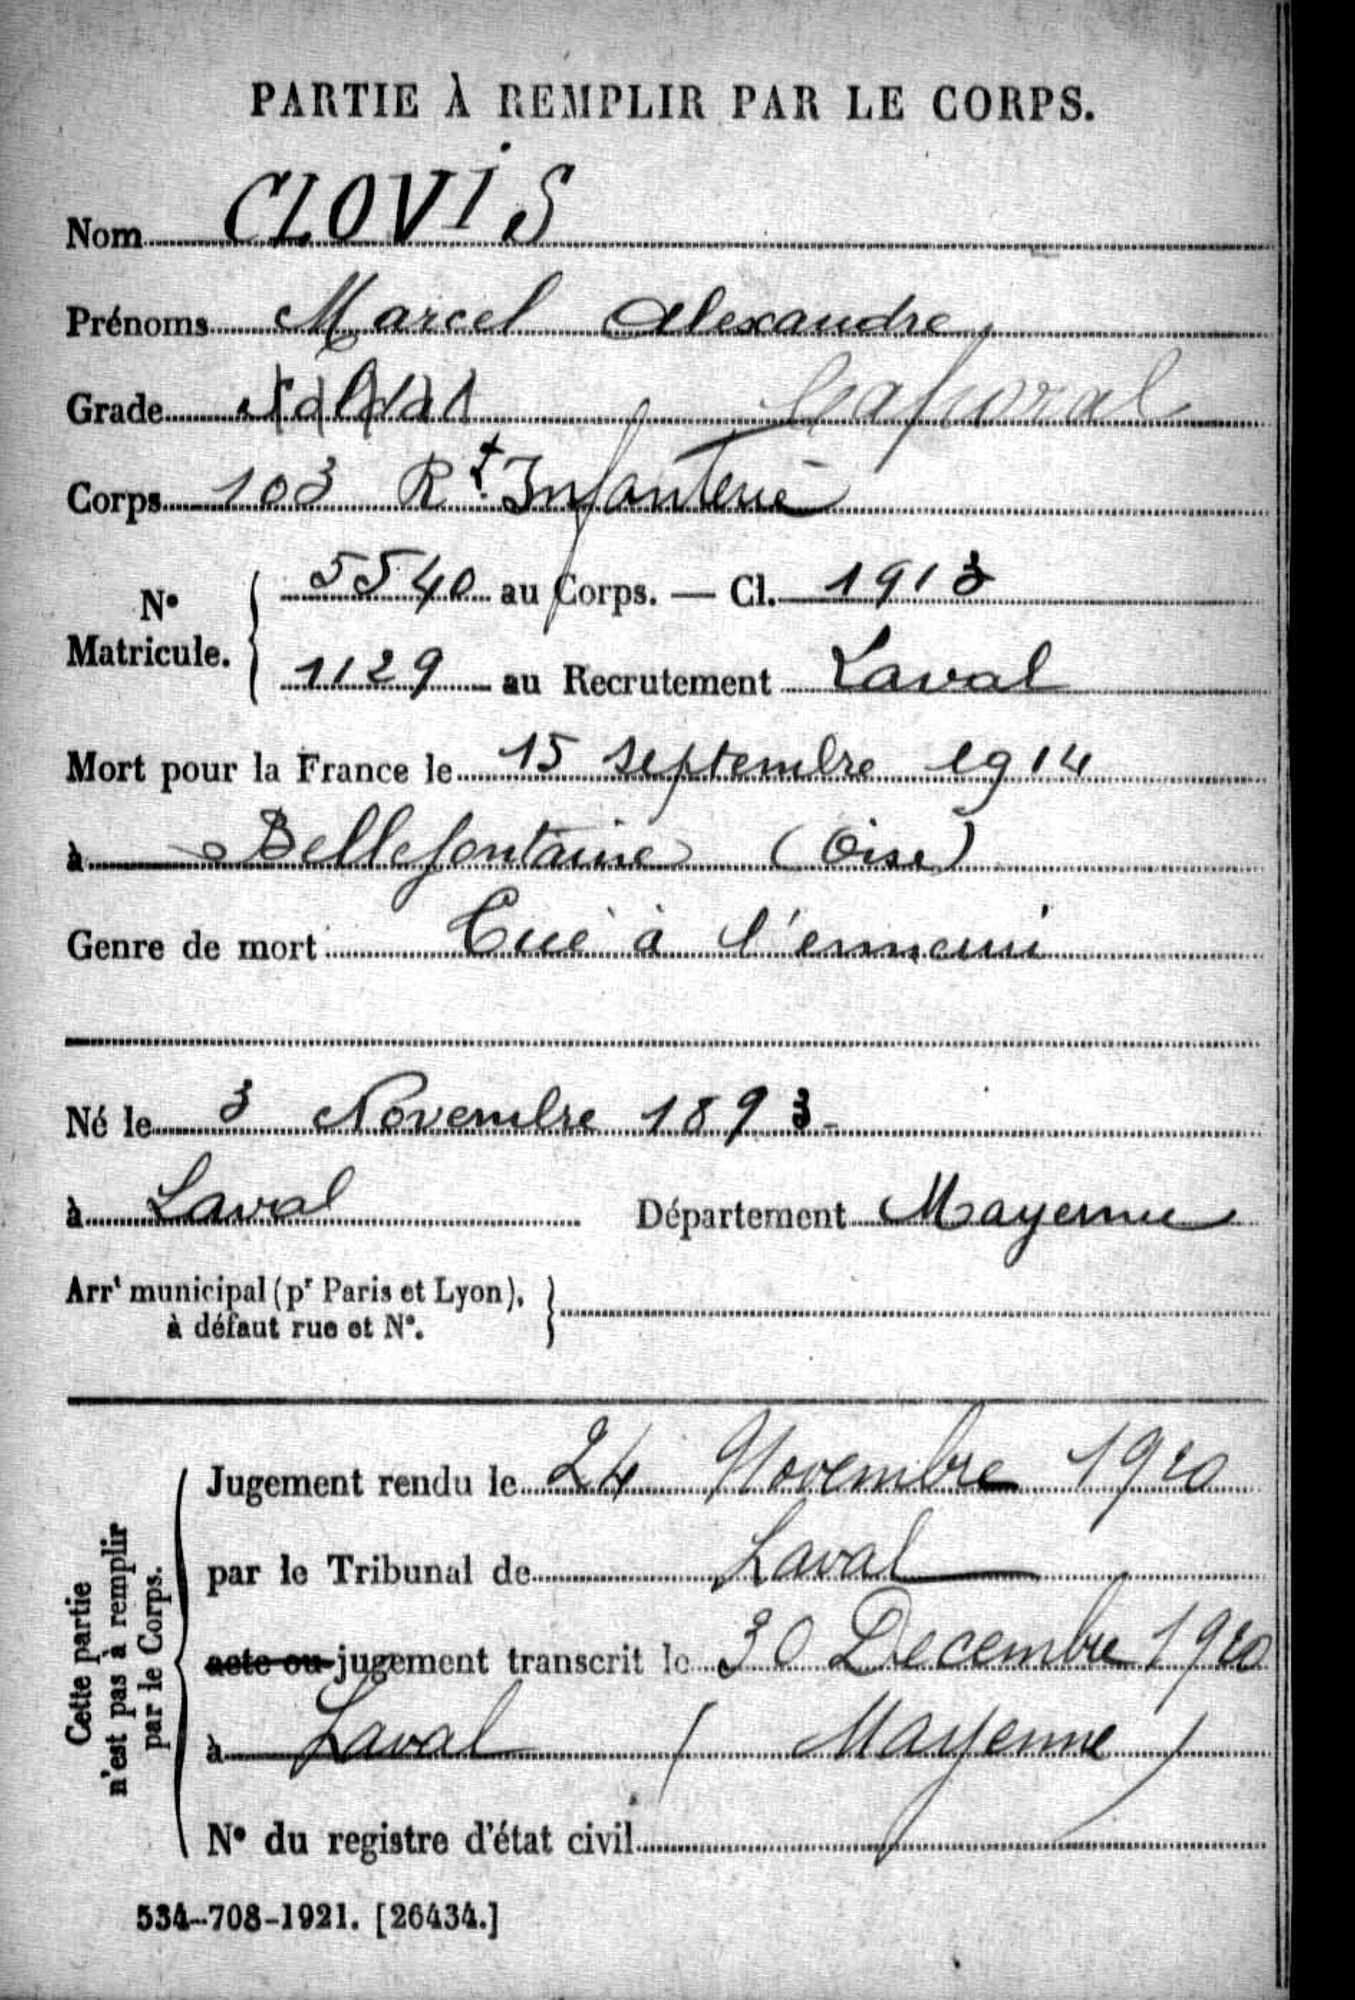 PARTIE À REMPLIR PAR LE CORPS.
Nom CLOVIS
Prénoms Marcel Alexandre
Grade Soldat Caporal
Corps 103 Rt. Infanterie
N° Matricule. 5540 au Corps. — Cl. 1913
1129 au Recrutement Laval
Mort pour la France le 15 septembre 1914
à Bellefontaine (Oise)
Genre de mort Tué à l'ennemi
Né le 3 Novembre 1893-
à Laval Département Mayenne
Arrt municipal (pr Paris et Lyon),
à défaut rue et N°.
Cette partie
n'est pas à remplir
par le Corps.
Jugement rendu le 24 Novembre 1920
par le Tribunal de Laval
acte ou jugement transcrit le 30 Decembre 1920
à Laval (Mayenne)
N° du registre d'état civil
534-708-1921. [26434.]